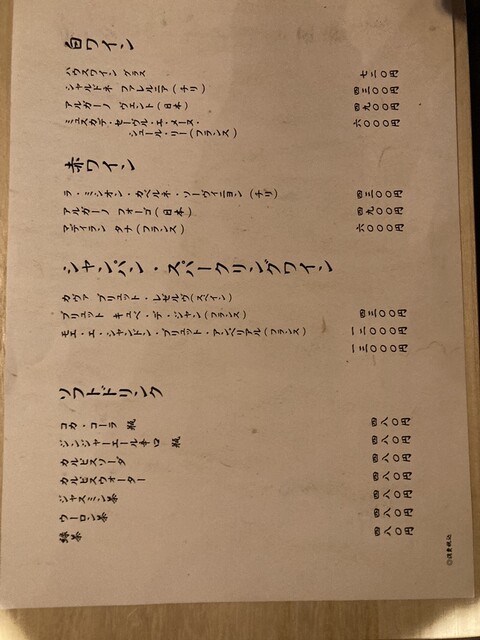 白ワイン
ハウスワイン グラス 七二〇円
シャルドネ ファレルニア(チリ) 四三〇〇円
アルガーノ ヴェント(日本) 四九〇〇円
ミュスカデ・セーヴル・エ・メーヌ・ 六〇〇〇円
シュール・リー(フランス)
赤ワイン
ラ・ミシオン・カベルネ・ソーヴィニヨン(チリ) 四三〇〇円
アルガーノ フォーゴ(日本) 四九〇〇円
マディラン タナ(フランス) 六〇〇〇円
シャンパン・スパークリングワイン
カヴァ ブリュット・レゼルヴ(スペイン)
ブリュット キュベ・デ・ジャン(フランス) 四三〇〇円
モエ・エ・シャンドン・ブリュット・アンペリアル(フランス) 一二〇〇〇円
一三〇〇〇円
ソフトドリンク
コカ・コーラ 瓶 四八〇円
ジンジャーエール辛口 瓶 四八〇円
カルピスソーダ 四八〇円
カルピスウォーター 四八〇円
ジャスミン茶 四八〇円
ウーロン茶 四八〇円
緑茶 四八〇円
◎消費税込